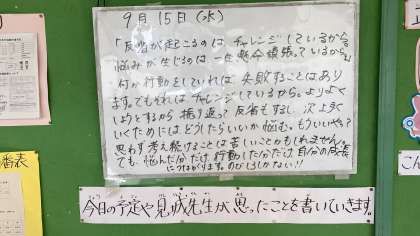 9月15日(水)
「反省が起こるのは、チャレンジしているから
悩みが生じるのは一生懸命頑張っているから」
何か行動をしていれば、失敗することはあり
ます。でもそれはチャレンジしているから。よりよく
しようとするから振り返って反省もするし、次上手く
いくためにはどうしたらいいか悩む。もういいやって
思わず考え続けることは苦しいことかもしれません。
でも悩んだ分だけ、行動した分だけ自分の成長
につながります。のびしろしかない!!
今日の予定や見城先生が思ったことを書いていきます。
番表
こん